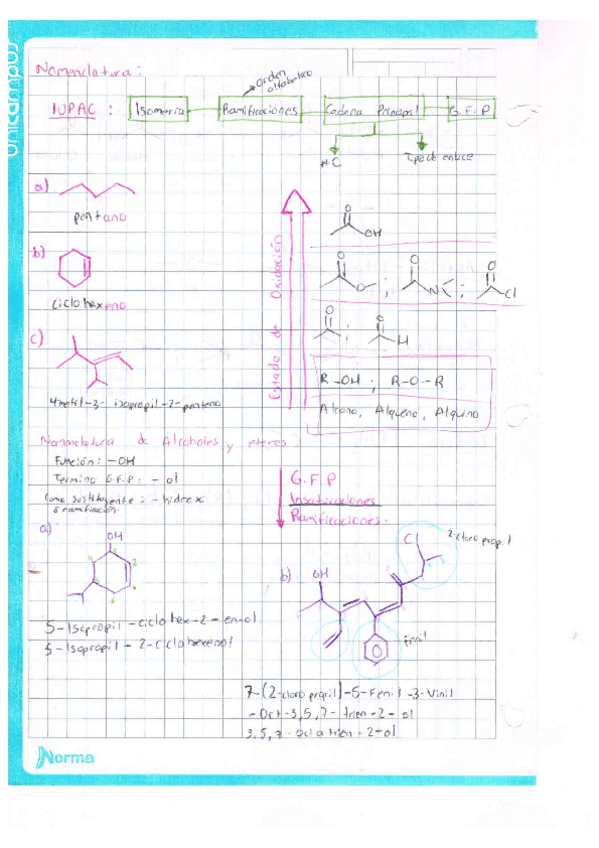 unicampus
Nomenclatura:
Orden
alfabetico
IUPAC : Isomeria Ramificaciones Cadena Principal G.F.P
#C Tipo de enlace
a)
pentano
b)
ciclohexeno
c)
4metil-3-isopropil-2-penteno
Estado de Oxidación
O
OH
O O ; O N ; O Cl
O ; O H
R-OH ; R-O-R
Alcano, Alqueno, Alquino
Nomenclatura de Alcoholes y eteres
Función: -OH
Termino G.F.P: -ol
Como sustituyente: -hidrox
o ramificación.
G.F.P
Insaturaciones
Ramificaciones.
a)
OH
1 2 3 4 5 6
5-Isopropil-ciclohex-2-en-ol
5-Isopropil-2-ciclohexenol
b)
OH
Cl
2-cloropropil
Fenil
7-(2-cloropropil)-5-Fenil-3-Vinil
-Oct-3,5,7-trien-2-ol
3,5,7-octatrien-2-ol
Norma